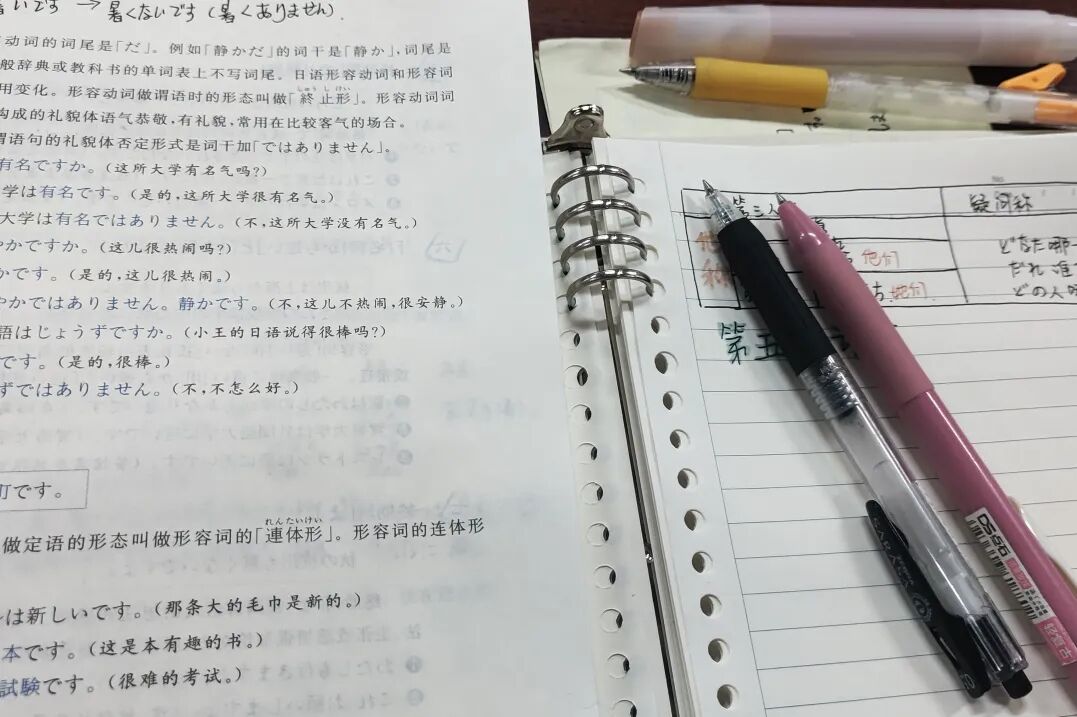 いです → 暑くないです(暑くありません).
动词的词尾是「だ」。例如「静かだ」的词干是「静か」,词尾是
般辞典或教科书的单词表上不写词尾。日语形容动词和形容词
用变化。形容动词做谓语时的形态叫做「終止形」。形容动词词
构成的礼貌体语气恭敬,有礼貌,常用在比较客气的场合。
谓语句的礼貌体否定形式是词干加「ではありません」。
有名ですか。(这所大学有名气吗?)
学は有名です。(是的,这所大学很有名气。)
大学は有名ではありません。(不,这所大学没有名气。)
やかですか。(这儿很热闹吗?)
かです。(是的,这儿很热闹。)
やかではありません。静かです。(不,这儿不热闹,很安静。)
語はじょうずですか。(小王的日语说得很棒吗?)
です。(是的,很棒。)
ずではありません。(不,不怎么好。)
町です。
做定语的形态叫做形容词的「連体形」。形容词的连体形
れんたいけい
は新しいです。(那条大的毛巾是新的。)
本です。(这是本有趣的书。)
試験です。(很难的考试。)
第三人
疑问称
他们
她们
どなた哪
だれ 谁
どの人
第五
DS点石